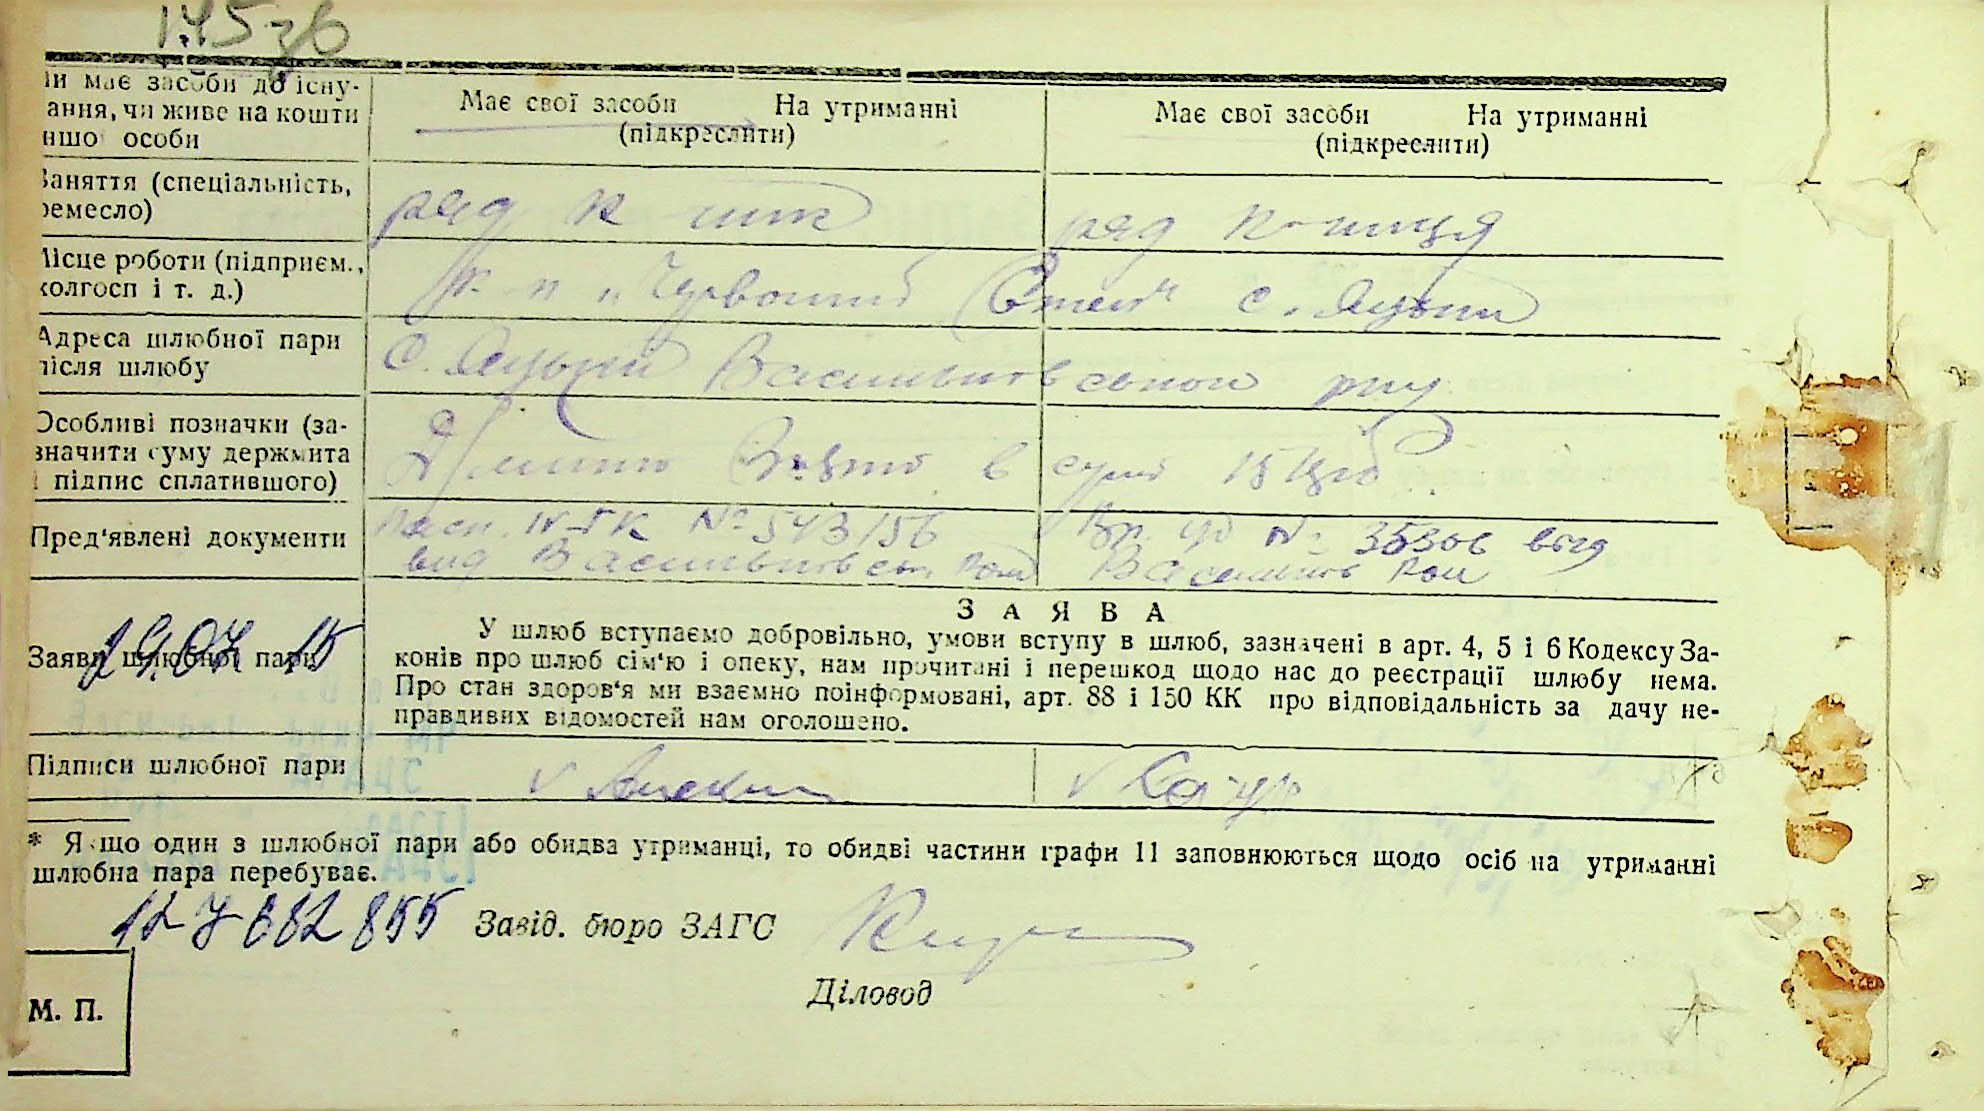 145 зв
ни має засоби до існу-
ання, чи живе на кошти
ншої особи
Має свої засоби На утриманні
(підкреслити)
Має свої засоби На утриманні
(підкреслити)
Заняття (спеціальність,
ремесло)
ряд к-ник
ряд к-ниця
Місце роботи (підприєм.,
колгосп і т. д.)
к-п „Червоний Степ“ с. Яцьки
Адреса шлюбної пари
після шлюбу
с. Яцьки Васильківського р-ну
Особливі позначки (за-
значити суму держмита
і підпис сплатившого)
в сумі 15
Пред‘явлені документи
Пасп. № 543156
вид Васильківськ. Ром
№ 35306 вид
Васильків Ром
Заяви шлюбної пари
З А Я В А
У шлюб вступаємо добровільно, умови вступу в шлюб, зазначені в арт. 4, 5 і 6 Кодексу За-
конів про шлюб сім‘ю і опеку, нам прочитані і перешкод щодо нас до реєстрації шлюбу нема.
Про стан здоров‘я ми взаємно поінформовані, арт. 88 і 150 КК про відповідальність за дачу не-
правдивих відомостей нам оголошено.
Підписи шлюбної пари
* Якщо один з шлюбної пари або обидва утриманці, то обидві частини графи 11 заповнюються щодо осіб на утриманні
шлюбна пара перебуває.
Завід. бюро ЗАГС
Діловод
М. П.